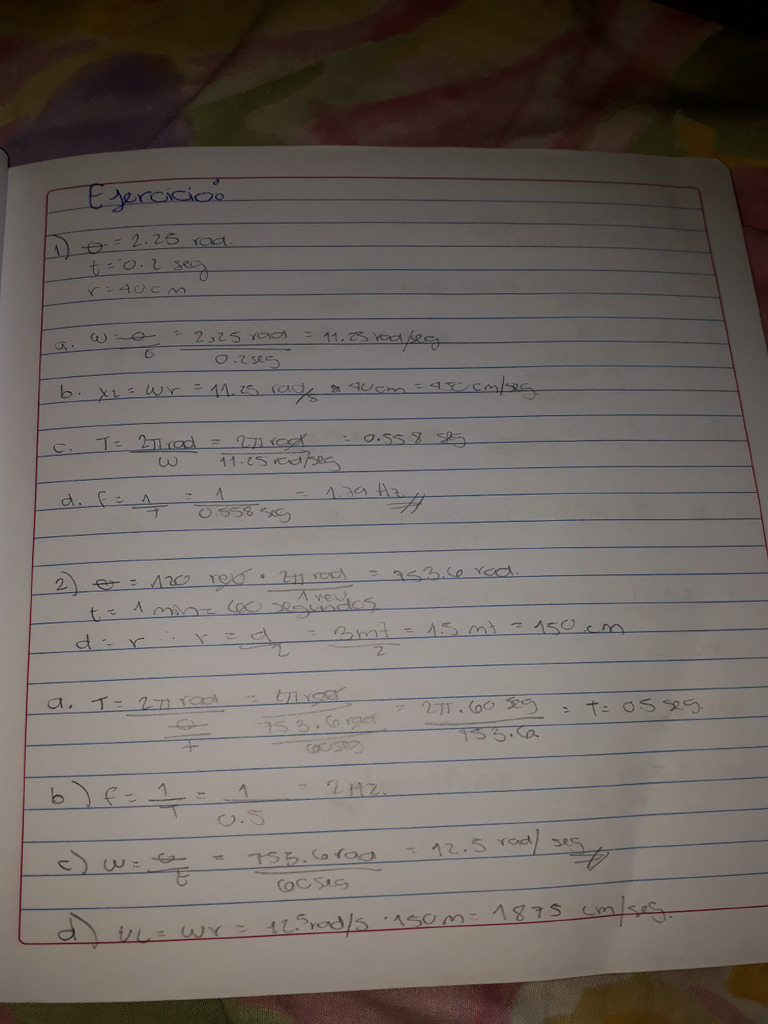 Ejercicio:
1) θ = 2.25 rad.
t = 0.2 seg
r = 40 cm
a. ω = θ/t = 2,25 rad/0.2 seg = 11.25 rad/seg
b. = ωr = 11.25 rad/s * 40 cm = 450 cm/seg
c. T = 2π rad/ω = 2π rad/11.25 rad/seg = 0.558 seg
d. F = 1/T = 1/0.558 seg = 1.79 Hz
2) θ = 120 rev · 2π rad/1 rev = 753.6 rad.
t = 1 min = 60 segundos
d = r ∴ r = d/2 = 3mt/2 = 1.5 mt = 150 cm
a. T = 2π rad/θ/t = 2π rad/753.6 rad/60 seg = 2π.60 seg/753.6 = t = 05 seg.
b) F = 1/T = 1/0.5 = 2 Hz.
c) ω = θ/t = 753.6 rad/60 seg = 12.5 rad/seg
d) VL = ωr = 12.5 rad/s · 150 m = 1875 cm/seg.